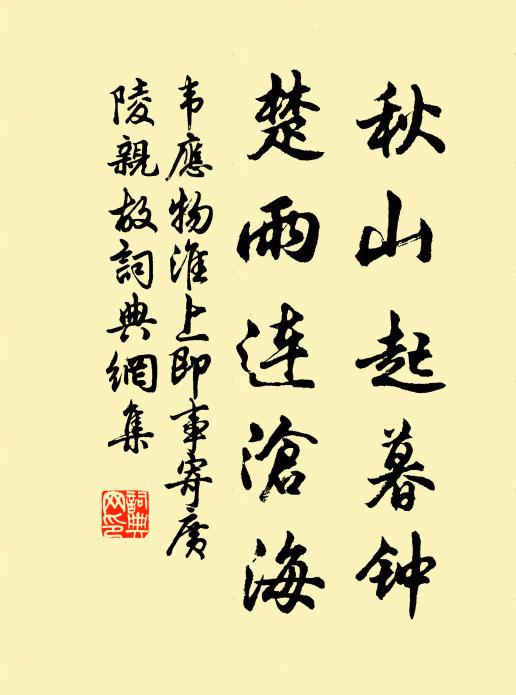 秋山起暮钟
楚雨连滄海
韦應物淮上即事寄廣
陵親故詞典網集
詞典
网印